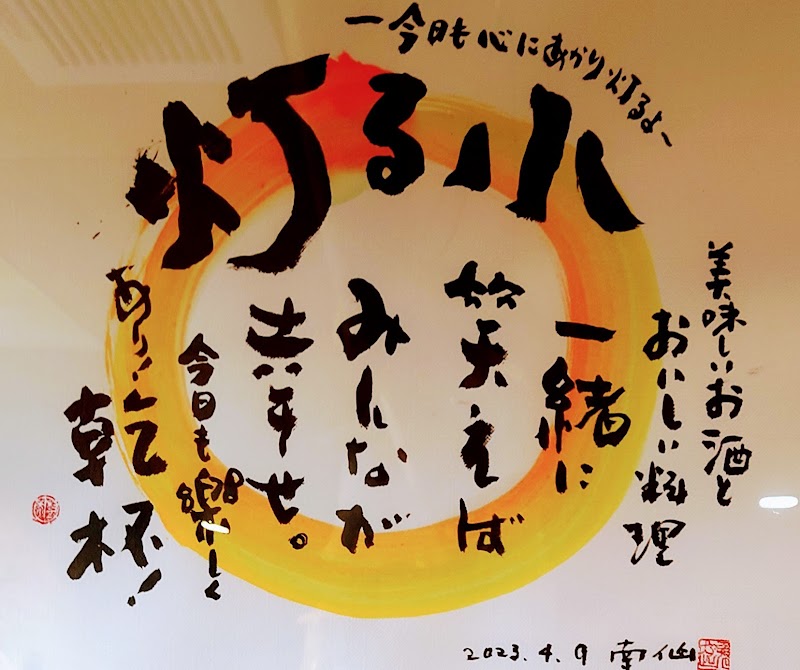 ―今日も心にあかり灯るよ―
灯る小
美味しいお酒と
おいしい料理
一緒に
笑えば
みんなが
幸せ。
今日も楽しく
乾杯!
2023.4.9 南仙